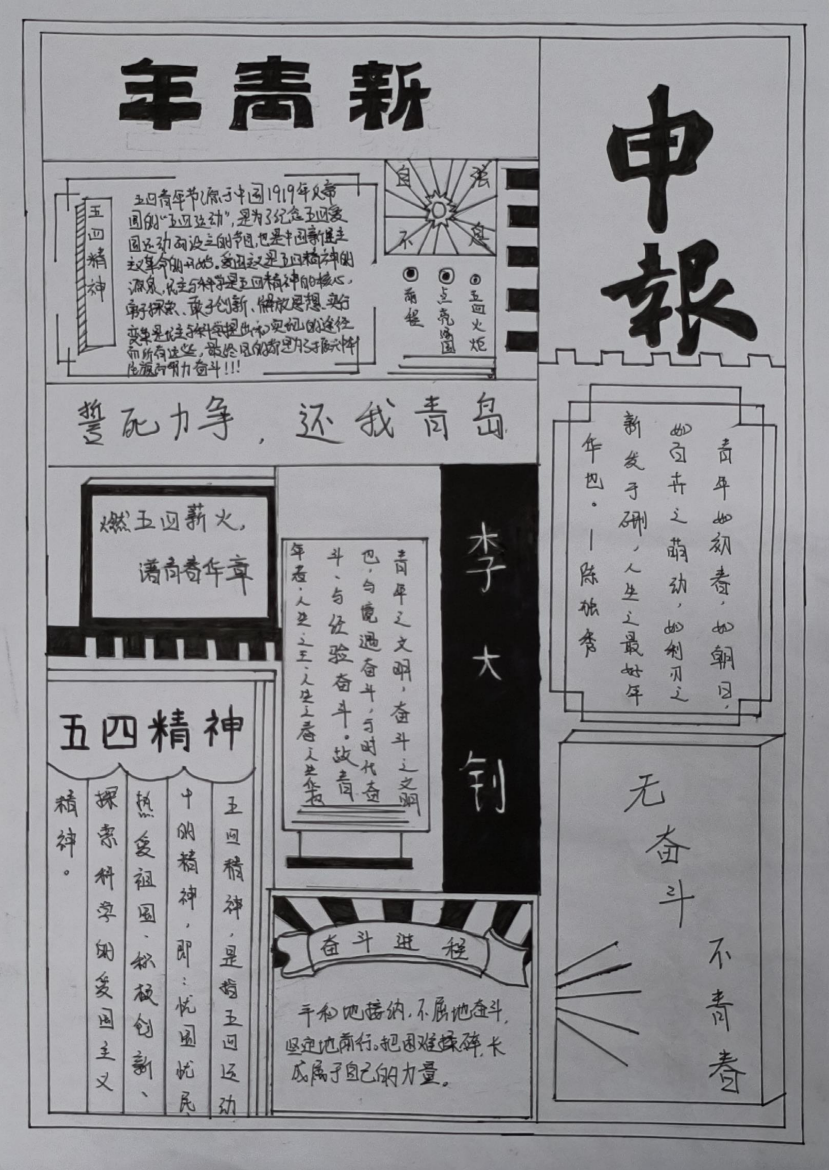 申報
年青新
五四精神
五四青年节源于中国1919年反帝
国的“五四运动”,是为了纪念五四爱
国运动而设立的节日,也是中国新民主
主义革命的开始。爱国主义是五四精神的
源泉,民主与科学是五四精神的核心,
勇于探索、敢于创新、解放思想、实行
变革是民主与科学提出和实现的途径
而所有这些,最终目的都是为了振兴中华
民族而努力奋斗!!!
自强
不息
五四火炬
点亮强国
前程
誓死力争,还我青岛
青年如初春,如朝日,
如百卉之萌动,如利刃之
新发于硎,人生之最好年
华也。—陈独秀
燃五四薪火,
谱青春华章
李大钊
青年之文明,奋斗之文明
也,与境遇奋斗,与时代奋
斗、与经验奋斗。故青
年者,人生之王、人生之春、人生华也
五四精神
五四精神,是指五四运动
中的精神,即:忧国忧民、
热爱祖国、积极创新、
探索科学的爱国主义
精神。
奋斗进程
平和地接纳,不屈地奋斗,
坚定地前行。把困难揉碎,长
成属于自己的力量。
无奋斗
不青春